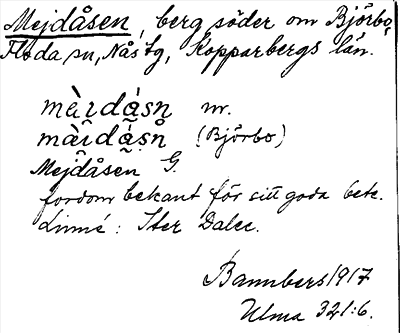 Mejdåsen, berg söder om Björbo,
Floda sn, Nås tg, Kopparbergs län.
màɪdásn nr.
màɪdásn̥ (Björbo)
Mejdåsen G.
fordom bekant för sitt goda bete.
Linné: Iter Dalec.
Bannbers 1917
Ulma 321:6.